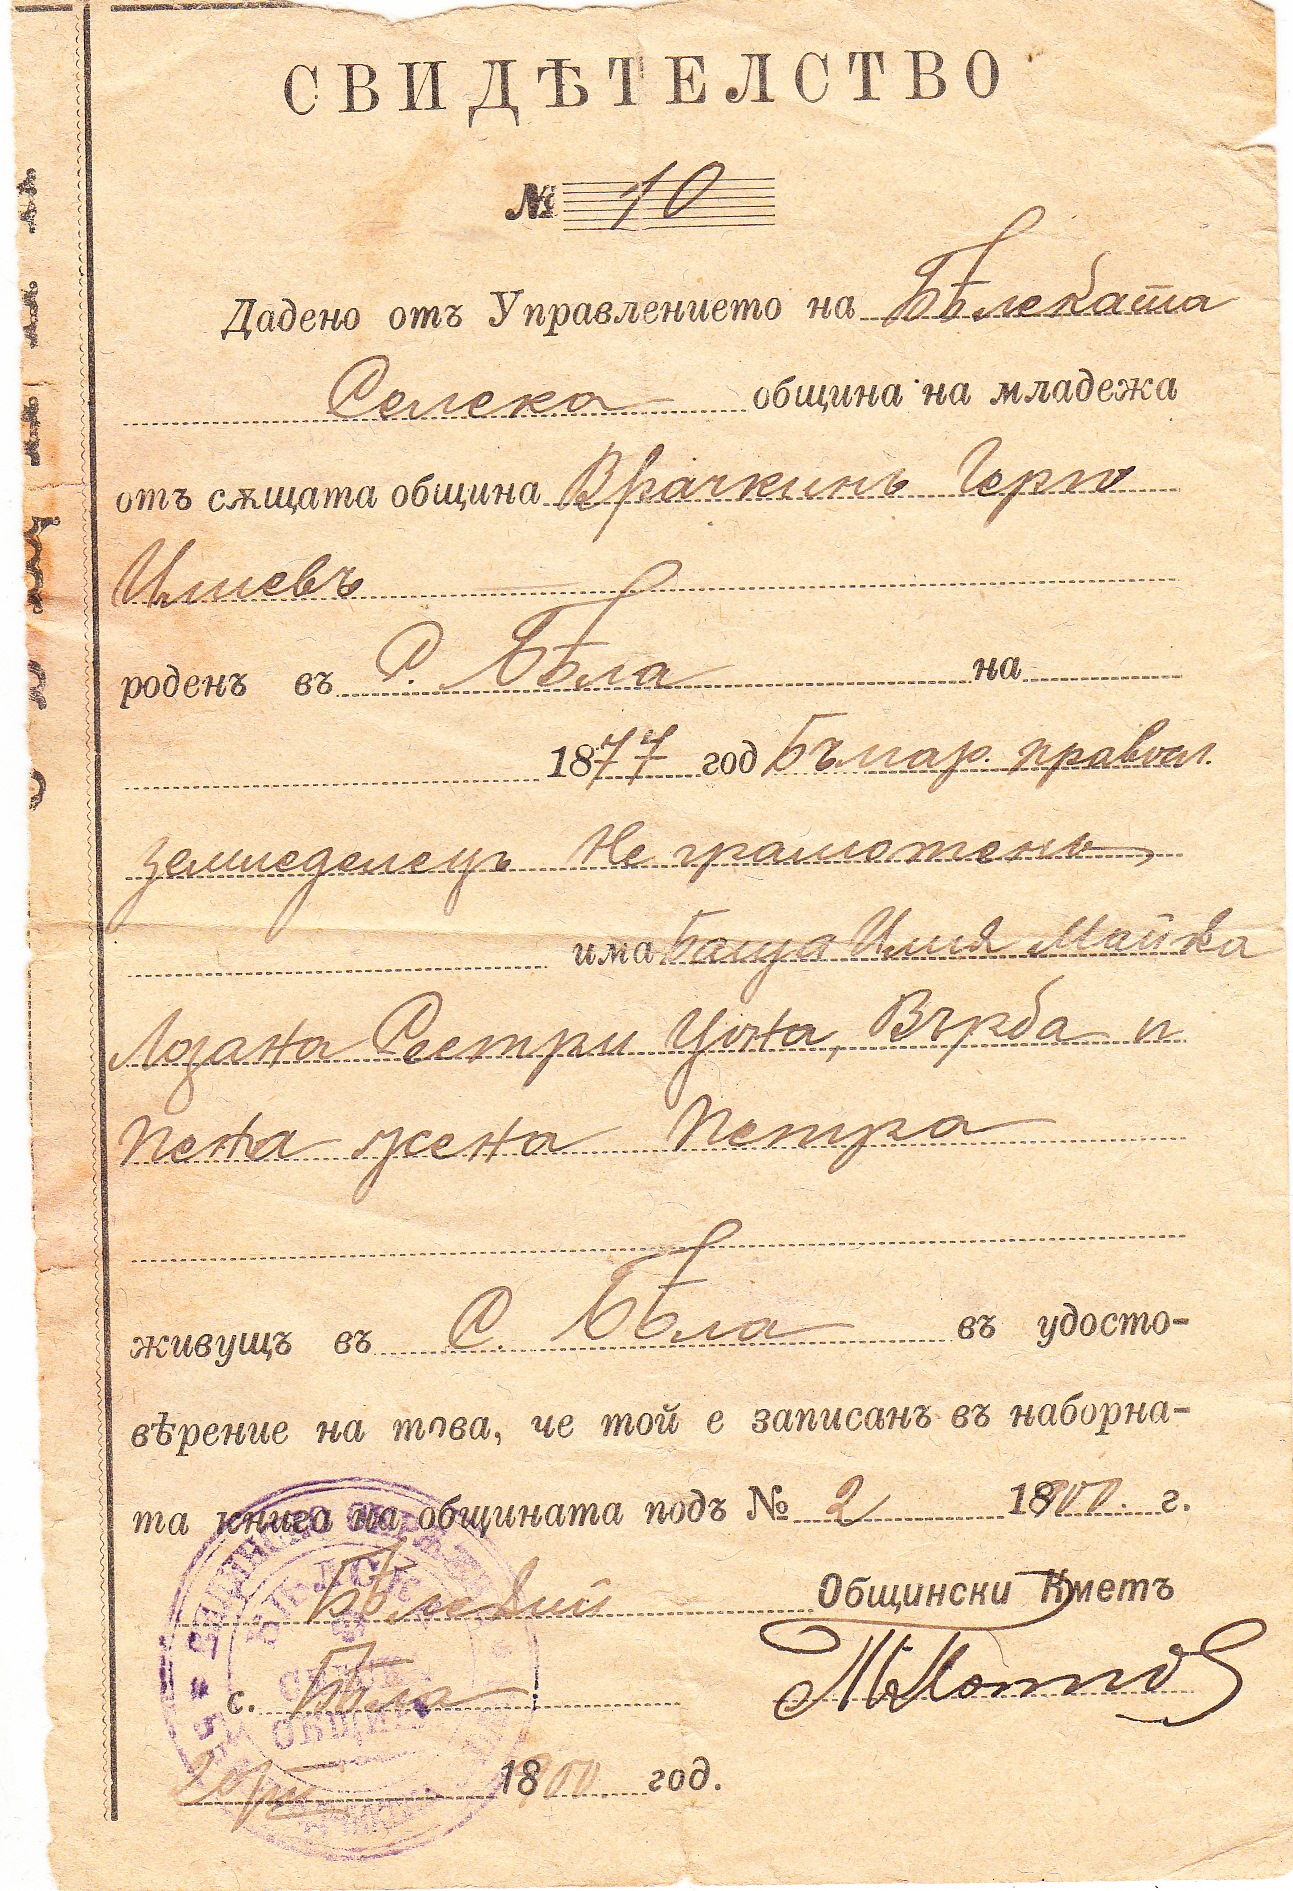 СВИДѢТЕЛСТВО
№ 10
Дадено отъ Управлението на Бѣлската
Селска община на младежа
отъ сѫщата община Врачкинъ Геро
Илиевъ
роденъ въ С. Бѣла на
1877 год Българ. правосл.
земледелецъ Не грамотенъ
има баща Илия Майка
Лозана Сестри Цона, Върба и
Пена жена Петра
живущъ въ С. Бѣла въ удосто-
вѣрение на това, че той е записанъ въ наборна-
та книга на общината подъ № 2 1900. г.
Общински Кметъ
с. Бѣла
1900 год.